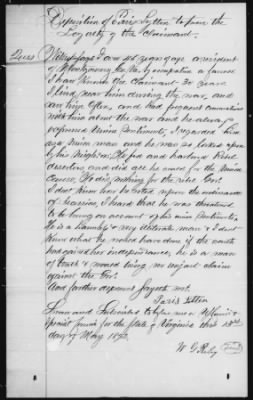 Deposition of Paris Litten to prove the
Loyalty of the Claimant.
Ques
Witness says I am 45 years of age a resident
of Montgomery Co Va by occupation a farmer
I have known the claimant 30 years
I lived near him during the war, and
saw him often, and had frequent conversations
with him about the war and he always
professed Union Sentiments, I regarded him
as a Union man and he was so looked upon
by his neighbors. He fed and harbored Rebel
deserters and did all he could for the Union
Cause, He did nothing for the rebel Gov.
I don't know how he voted upon the ordinance
of Secession, I heard that he was threatened
to be hung on account of his union sentiments,
He is a harmless & very moderate man & I don't
know what he would have done if the south
had gained her independence, he is a man
of truth & would bring no unjust claim
against the Gov.
And further deponent sayeth not.
Paris Litten
Sworn and Subscribed to before me a
Special for the State of Virginia this 13th
day of May 187
W. G. Riley